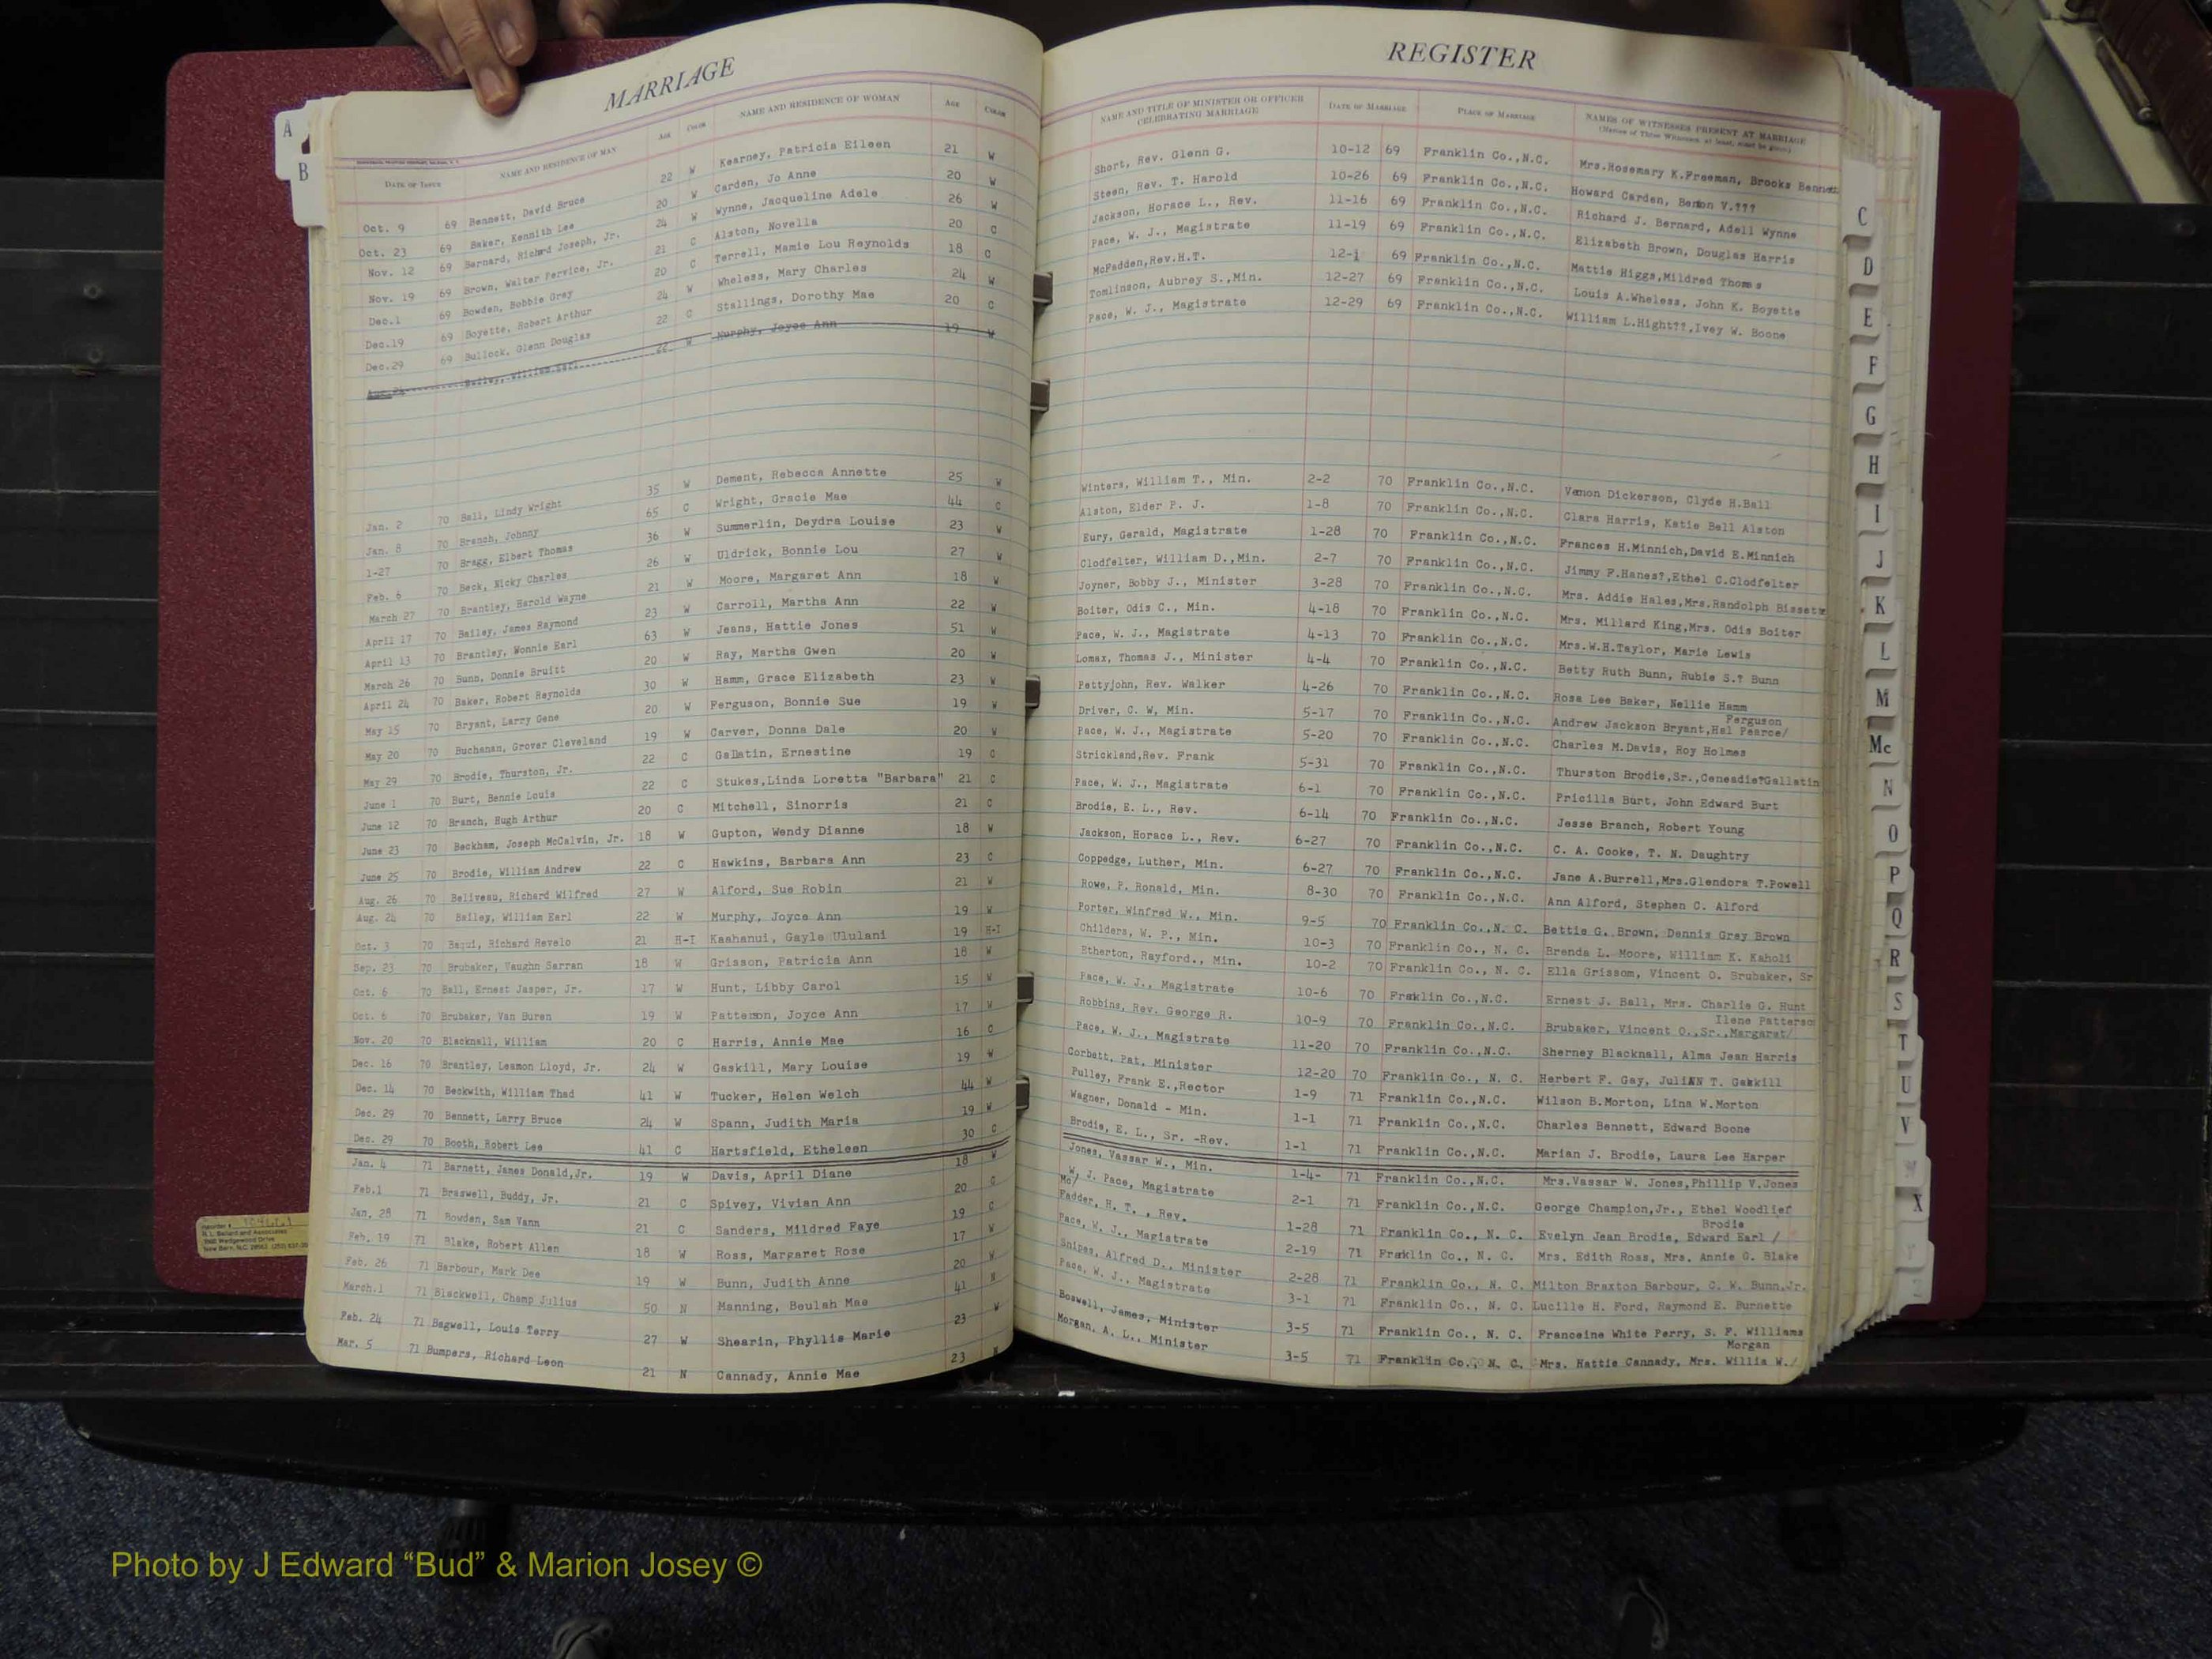 MARRIAGE
REGISTER
DATE OF ISSUE NAME AND RESIDENCE OF MAN AGE COLOR NAME AND RESIDENCE OF WOMAN AGE COLOR NAME AND TITLE OF MINISTER OR OFFICER CELEBRATING MARRIAGE DATE OF MARRIAGE PLACE OF MARRIAGE NAMES OF WITNESSES PRESENT AT MARRIAGE
(Names of Three Witnesses, at least, must be given.)
Oct. 9 69 Bennett, David Bruce 22 W Kearney, Patricia Eileen 21 W Short, Rev. Glenn G. 10-12 69 Franklin Co.,N.C. Mrs.Rosemary K.Freeman, Brooks Bennett
Oct. 23 69 Baker, Kennith Lee 20 W Carden, Jo Anne 20 W Steen, Rev. T. Harold 10-26 69 Franklin Co.,N.C. Howard Carden, Benton V.???
Nov. 12 69 Bernard, Richard Joseph, Jr. 24 W Wynne, Jacqueline Adele 26 W Jackson, Horace L., Rev. 11-16 69 Franklin Co.,N.C. Richard J. Bernard, Adell Wynne
Nov. 19 69 Brown, Walter Pervice, Jr. 21 C Alston, Novella 20 C Pace, W. J., Magistrate 11-19 69 Franklin Co.,N.C. Elizabeth Brown, Douglas Harris
Dec.1 69 Bowden, Bobbie Gray 20 C Terrell, Mamie Lou Reynolds 18 C McFadden,Rev.H.T. 12-1 69 Franklin Co.,N.C. Mattie Higgs,Mildred Thomas
Dec.19 69 Boyette, Robert Arthur 24 W Wheless, Mary Charles 24 W Tomlinson, Aubrey S.,Min. 12-27 69 Franklin Co.,N.C. Louis A.Wheless, John K. Boyette
Dec.29 69 Bullock, Glenn Douglas 22 C Stallings, Dorothy Mae 20 C Pace, W. J., Magistrate 12-29 69 Franklin Co.,N.C. William L.Hight??,Ivey W. Boone
Aug. 24 Bailey, William Earl 22 W Murphy, Joyce Ann 19 W
Jan. 2 70 Ball, Lindy Wright 35 W Dement, Rebecca Annette 25 W Winters, William T., Min. 2-2 70 Franklin Co.,N.C. Vernon Dickerson, Clyde H.Ball
Jan. 8 70 Branch, Johnny 65 C Wright, Gracie Mae 44 C Alston, Elder P. J. 1-8 70 Franklin Co.,N.C. Clara Harris, Katie Bell Alston
1-27 70 Bragg, Elbert Thomas 36 W Summerlin, Deydra Louise 23 W Eury, Gerald, Magistrate 1-28 70 Franklin Co.,N.C. Frances H.Minnich,David E.Minnich
Feb. 6 70 Beck, Nicky Charles 26 W Uldrick, Bonnie Lou 27 W Clodfelter, William D.,Min. 2-7 70 Franklin Co.,N.C. Jimmy F.Hanes?,Ethel C.Clodfelter
March 27 70 Brantley, Harold Wayne 21 W Moore, Margaret Ann 18 W Joyner, Bobby J., Minister 3-28 70 Franklin Co.,N.C. Mrs. Addie Hales,Mrs.Randolph Bissette
April 17 70 Bailey, James Raymond 23 W Carroll, Martha Ann 22 W Boiter, Odis C., Min. 4-18 70 Franklin Co.,N.C. Mrs. Millard King,Mrs. Odis Boiter
April 13 70 Brantley, Wonnie Earl 63 W Jeans, Hattie Jones 51 W Pace, W. J., Magistrate 4-13 70 Franklin Co.,N.C. Mrs.W.H.Taylor, Marie Lewis
March 26 70 Bunn, Donnie Bruitt 20 W Ray, Martha Gwen 20 W Lomax, Thomas J., Minister 4-4 70 Franklin Co.,N.C. Betty Ruth Bunn, Rubie S.? Bunn
April 24 70 Baker, Robert Reynolds 30 W Hamm, Grace Elizabeth 23 W Pettyjohn, Rev. Walker 4-26 70 Franklin Co.,N.C. Rosa Lee Baker, Nellie Hamm
Ferguson
May 15 70 Bryant, Larry Gene 20 W Ferguson, Bonnie Sue 19 W Driver, C. W, Min. 5-17 70 Franklin Co.,N.C. Andrew Jackson Bryant,Hal Pearce/
May 20 70 Buchanan, Grover Cleveland 19 W Carver, Donna Dale 20 W Pace, W. J., Magistrate 5-20 70 Franklin Co.,N.C. Charles M.Davis, Roy Holmes
May 29 70 Brodie, Thurston, Jr. 22 C Gallatin, Ernestine 19 C Strickland,Rev. Frank 5-31 70 Franklin Co.,N.C. Thurston Brodie,Sr.,Ceneadie?Gallatin
June 1 70 Burt, Bennie Louis 22 C Stukes,Linda Loretta "Barbara" 21 C Pace, W. J., Magistrate 6-1 70 Franklin Co.,N.C. Pricilla Burt, John Edward Burt
June 12 70 Branch, Hugh Arthur 20 C Mitchell, Sinorris 21 C Brodie, E. L., Rev. 6-14 70 Franklin Co.,N.C. Jesse Branch, Robert Young
June 23 70 Beckham, Joseph McCalvin, Jr. 18 W Gupton, Wendy Dianne 18 W Jackson, Horace L., Rev. 6-27 70 Franklin Co.,N.C. C. A. Cooke, T. N. Daughtry
June 25 70 Brodie, William Andrew 22 C Hawkins, Barbara Ann 23 C Coppedge, Luther, Min. 6-27 70 Franklin Co.,N.C. Jane A.Burrell,Mrs.Glendora T.Powell
Aug. 26 70 Beliveau, Richard Wilfred 27 W Alford, Sue Robin 21 W Rowe, P. Ronald, Min. 8-30 70 Franklin Co.,N.C. Ann Alford, Stephen C. Alford
Aug. 24 70 Bailey, William Earl 22 W Murphy, Joyce Ann 19 W Porter, Winfred W., Min. 9-5 70 Franklin Co.,N. C. Bettie G. Brown, Dennis Gray Brown
Oct. 3 70 Baqui, Richard Revelo 21 H-I Kaahanui, Gayle Ululani 19 H-I Childers, W. P., Min. 10-3 70 Franklin Co., N. C. Brenda L. Moore, William K. Kaholi
Sep. 23 70 Brubaker, Vaughn Sarran 18 W Grisson, Patricia Ann 18 W Etherton, Rayford., Min. 10-2 70 Franklin Co., N. C. Ella Grissom, Vincent O. Brubaker, Sr
Oct. 6 70 Ball, Ernest Jasper, Jr. 17 W Hunt, Libby Carol 15 W Pace, W. J., Magistrate 10-6 70 Franklin Co.,N.C. Ernest J. Ball, Mrs. Charlie G. Hunt
Ilene Patterso
Oct. 6 70 Brubaker, Van Buren 19 W Patterson, Joyce Ann 17 W Robbins, Rev. George R. 10-9 70 Franklin Co.,N.C. Brubaker, Vincent O.,Sr.,Margaret/
Nov. 20 70 Blacknall, William 20 C Harris, Annie Mae 16 C Pace, W. J., Magistrate 11-20 70 Franklin Co.,N.C. Sherney Blacknall, Alma Jean Harris
Dec. 16 70 Brantley, Leamon Lloyd, Jr. 24 W Gaskill, Mary Louise 19 W Corbett, Pat. Minister 12-20 70 Franklin Co., N. C. Herbert F. Gay, JuliAN T. Gaskill
Dec. 14 70 Beckwith, William Thad 41 W Tucker, Helen Welch 44 W Pulley, Frank E.,Rector 1-9 71 Franklin Co.,N.C. Wilson B.Morton, Lina W.Morton
Dec. 29 70 Bennett, Larry Bruce 24 W Spann, Judith Maria 19 W Wagner, Donald - Min. 1-1 71 Franklin Co.,N.C. Charles Bennett, Edward Boone
Dec. 29 70 Booth, Robert Lee 41 C Hartsfield, Etheleen 30 C Brodie, E. L., Sr. -Rev. 1-1 71 Franklin Co.,N.C. Marian J. Brodie, Laura Lee Harper
Jan. 4 71 Barnett, James Donald,Jr. 19 W Davis, April Diane 18 W Jones, Vassar W., Min. 1-4- 71 Franklin Co.,N.C. Mrs.Vassar W. Jones,Phillip V.Jones
Feb.1 71 Braswell, Buddy, Jr. 21 C Spivey, Vivian Ann 20 C W. J. Pace, Magistrate 2-1 71 Franklin Co.,N.C. George Champion,Jr., Ethel Woodlief
Mc/ Brodie
Jan. 28 71 Bowden, Sam Vann 21 C Sanders, Mildred Faye 19 C Fadder, H. T. , Rev. 1-28 71 Franklin Co., N. C. Evelyn Jean Brodie, Edward Earl /
Feb. 19 71 Blake, Robert Allen 18 W Ross, Margaret Rose 17 W Pace, W. J., Magistrate 2-19 71 Franklin Co., N. C. Mrs. Edith Ross, Mrs. Annie G. Blake
Feb. 26 71 Barbour, Mark Dee 19 W Bunn, Judith Anne 20 W Snipes, Alfred D., Minister 2-28 71 Franklin Co., N. C. Milton Braxton Barbour, C. W. Bunn,Jr.
March.1 71 Blackwell, Champ Julius 50 N Manning, Beulah Mae 41 N Pace, W. J., Magistrate 3-1 71 Franklin Co., N. C. Lucille H. Ford, Raymond E. Burnette
Feb. 24 71 Bagwell, Louis Terry 27 W Shearin, Phyllis Marie 23 W Boswell, James, Minister 3-5 71 Franklin Co., N. C. Franceine White Perry, S. F. Williams
Morgan
Mar. 5 71 Bumpers, Richard Leon 21 N Cannady, Annie Mae 23 N Morgan, A. L., Minister 3-5 71 Franklin Co., N. C. Mrs. Hattie Cannady, Mrs. Willia W./
A
B
C
D
E
F
G
H
I
J
K
L
M
Mc
N
O
P
Q
R
S
T
U
V
X
Photo by J Edward “Bud” & Marion Josey ©